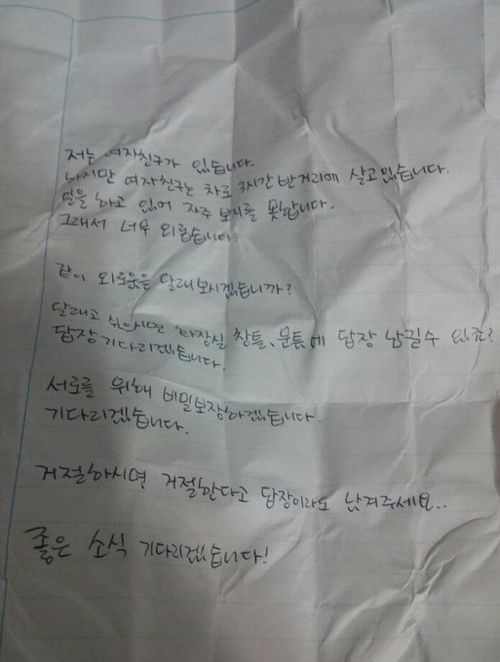 저는 여자친구가 있습니다.
하지만 여자친구는 차로 3시간 반거리에 살고있습니다.
일을 하고 있어 자주 보지를 못합니다.
그래서 너무 외롭습니다.
같이 외로움을 달래보시겠습니까?
달래고 싶으시면 화장실 창틀, 문틈에 답장 남길수 있죠?
답장기다리겠습니다.
서로를 위해 비밀보장하겠습니다.
기다리겠습니다.
거절하시면 거절한다고 답장이라도 남겨주세요..
좋은 소식 기다리겠습니다!